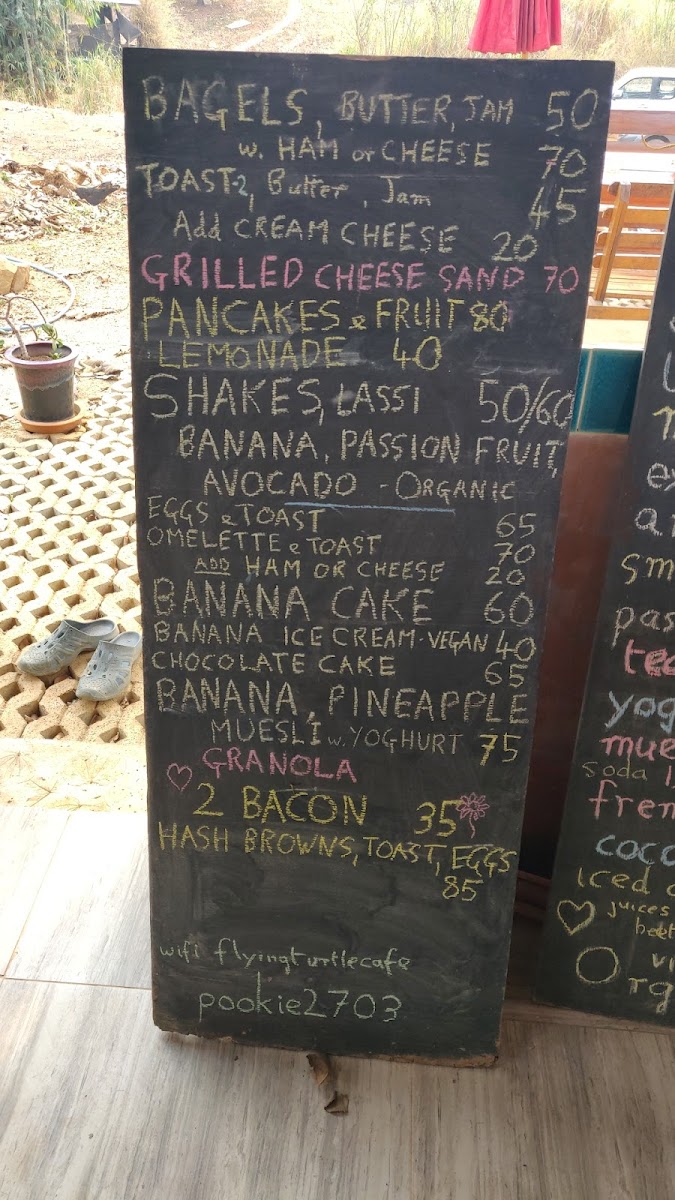 BAGELS, BUTTER, JAM 50
w. HAM or CHEESE 70
TOAST-2, Butter, Jam 45
Add CREAM CHEESE 20
GRILLED CHEESE SAND 70
PANCAKES & FRUIT 80
LEMONADE 40
SHAKES, LASSI 50/60
BANANA, PASSION FRUIT,
AVOCADO - ORGANIC
EGGS & TOAST 65
OMELETTE & TOAST 70
ADD HAM OR CHEESE 20
BANANA CAKE 60
BANANA ICE CREAM - VEGAN 40
CHOCOLATE CAKE 65
BANANA, PINEAPPLE
MUESLI w. YOGHURT 75
GRANOLA
2 BACON 35
HASH BROWNS, TOAST, EGGS
85
wifi flyingturtlecafe
pookie2703
sm
pas
tea
yog
mue
soda
fren
coco
iced
juices
beet
vi
Org